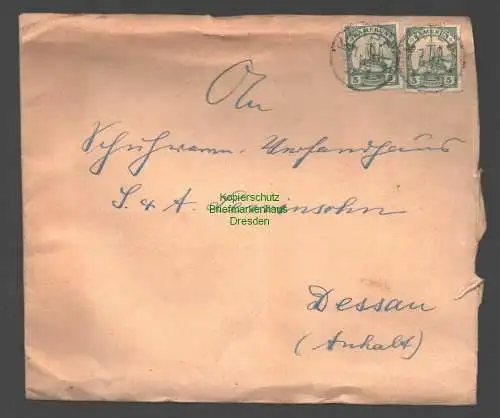 KAMERUN KAMERUN
5 5 5 5
An
Schuhwaren-Versandhaus
S & A
Kopierschutz
Briefmarkenhaus
Dresden
Dessau
(Anhalt)